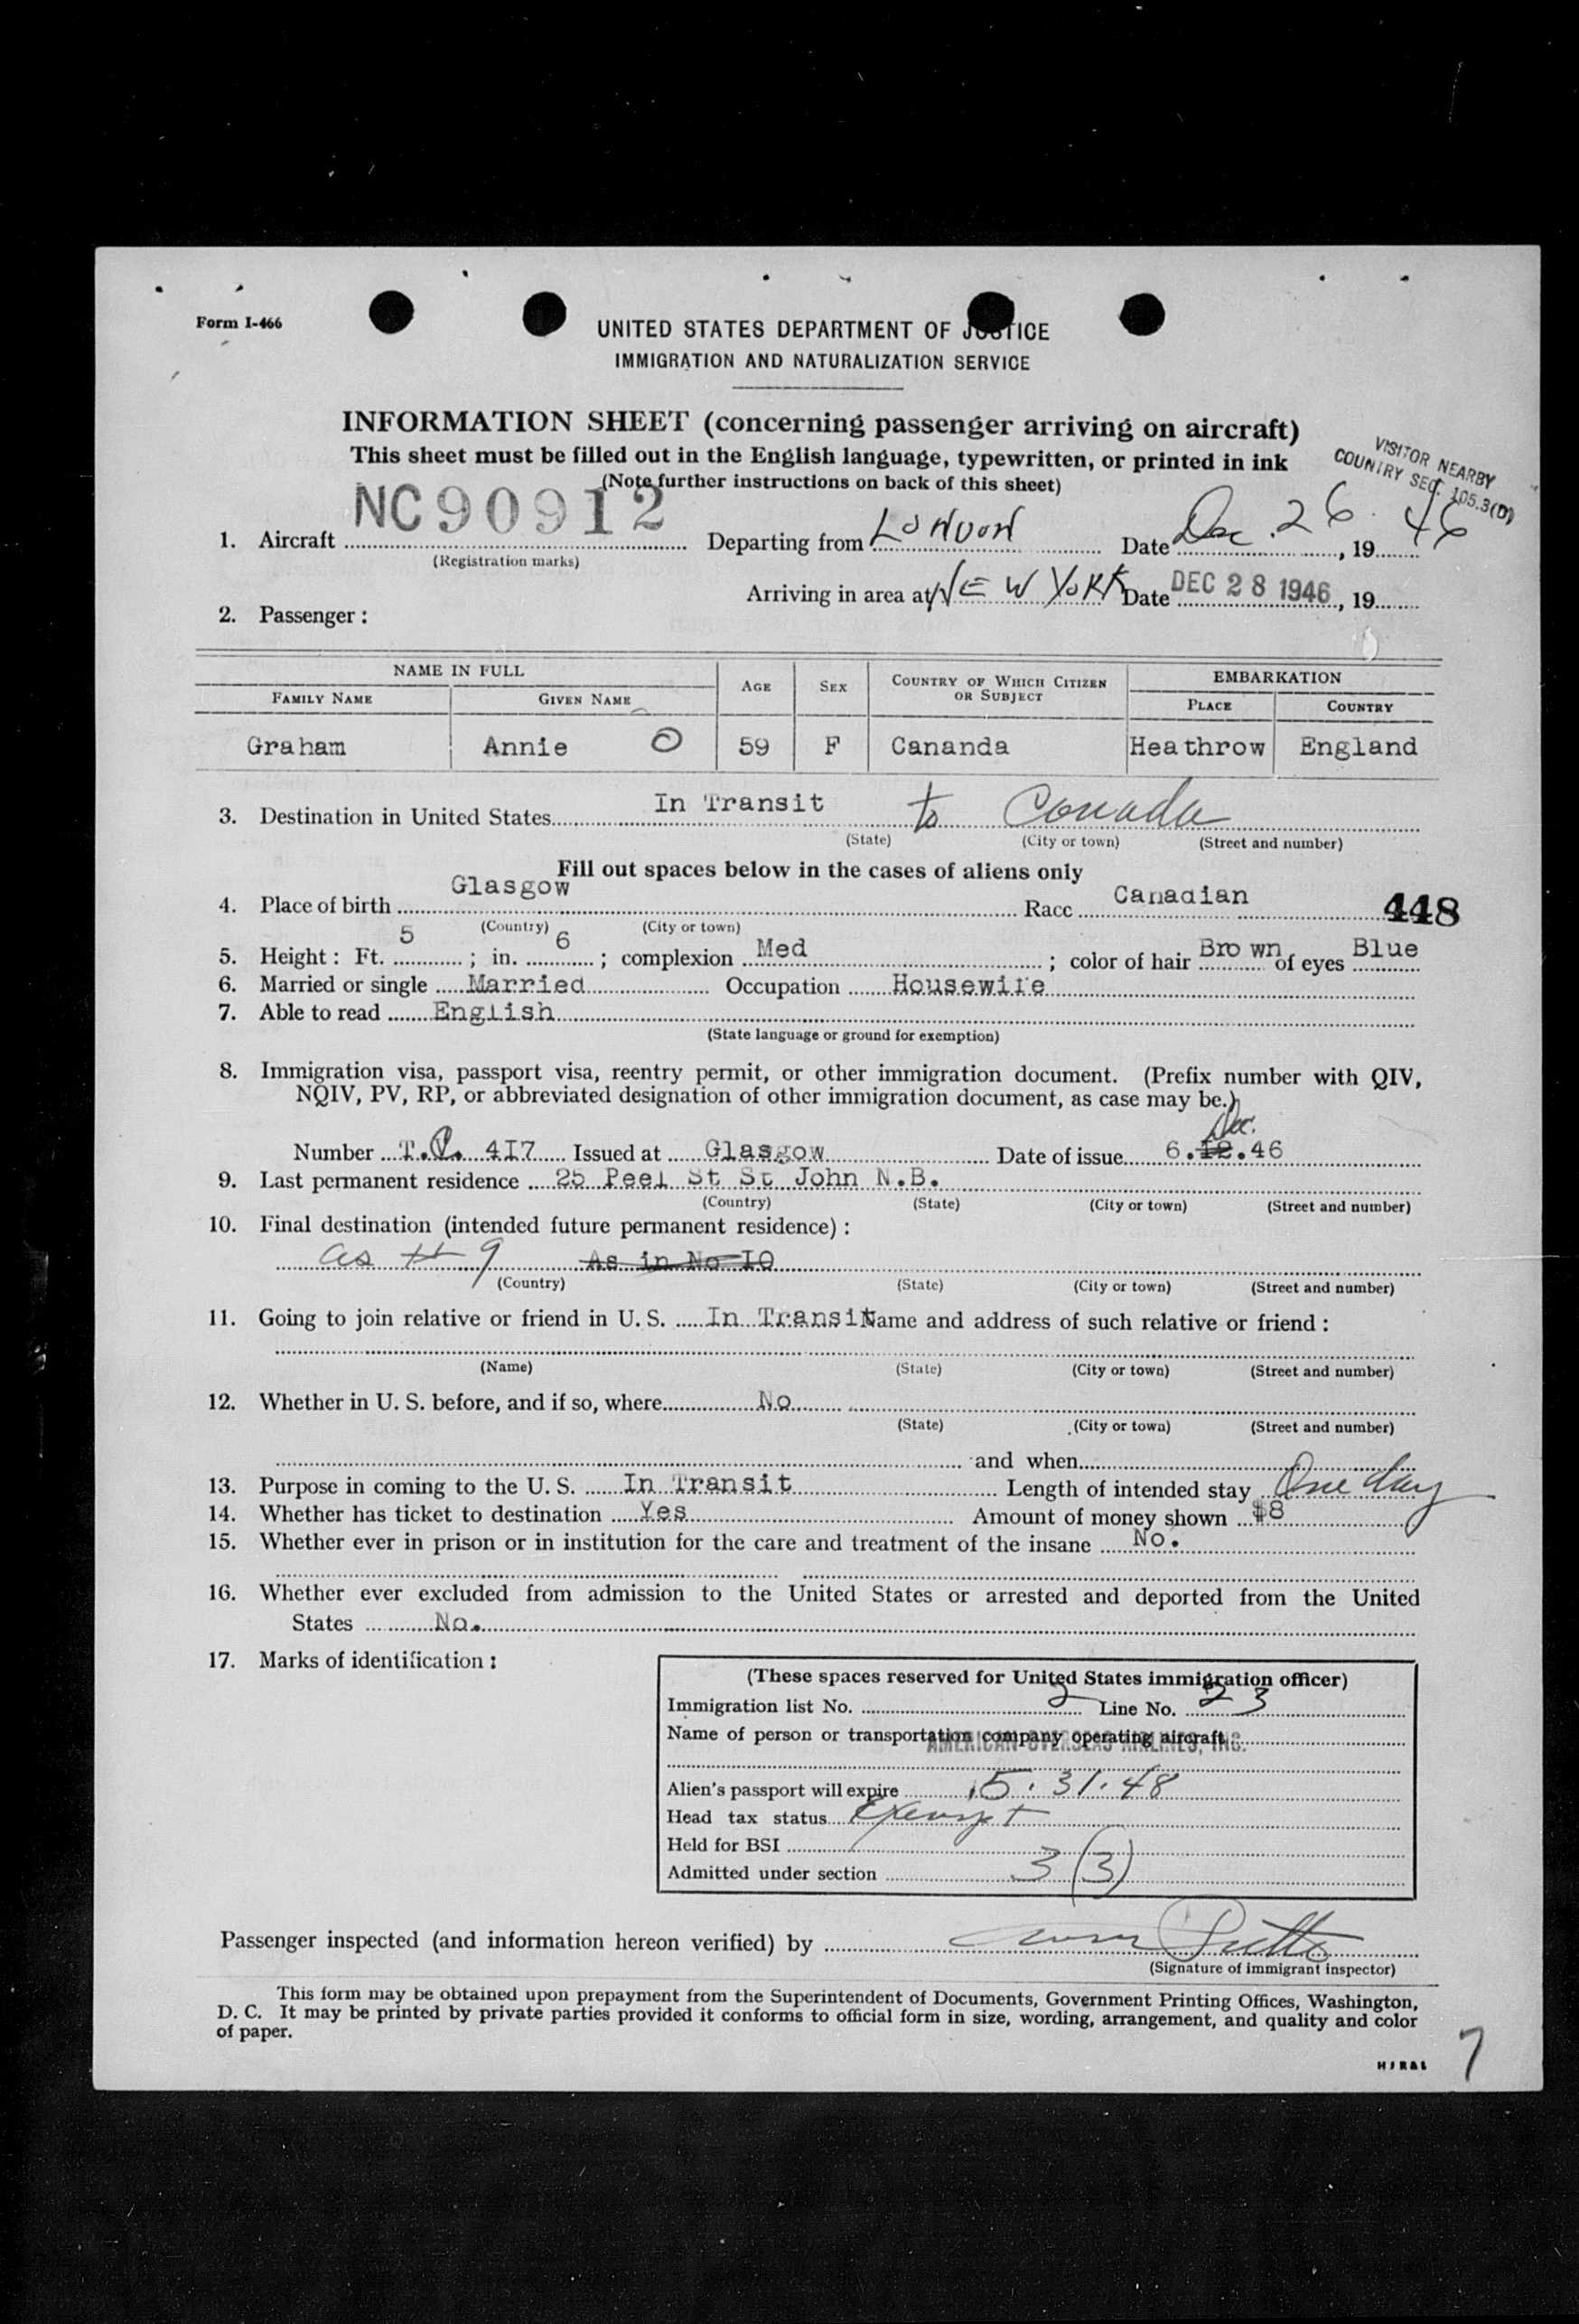 Form I-466
UNITED STATES DEPARTMENT OF JUSTICE
IMMIGRATION AND NATURALIZATION SERVICE
INFORMATION SHEET (concerning passenger arriving on aircraft)
This sheet must be filled out in the English language, typewritten, or printed in ink
(Note further instructions on back of this sheet)
VISITOR NEARBY
COUNTRY SEC. 105.3(D)
1. Aircraft NC90912 Departing from LONDON Date Dec. 26. , 19 46
(Registration marks)
Arriving in area at NEW YORK Date DEC 28 1946, 19
2. Passenger:
NAME IN FULL AGE SEX COUNTRY OF WHICH CITIZEN OR SUBJECT EMBARKATION
FAMILY NAME GIVEN NAME PLACE COUNTRY
Graham Annie O 59 F Cananda Heathrow England
3. Destination in United States In Transit to Canada
(State) (City or town) (Street and number)
Fill out spaces below in the cases of aliens only
4. Place of birth Glasgow Race Canadian 448
(Country) (City or town)
5. Height: Ft. 5; in. 6; complexion Med; color of hair Brown of eyes Blue
6. Married or single Married Occupation Housewife
7. Able to read English
(State language or ground for exemption)
8. Immigration visa, passport visa, reentry permit, or other immigration document. (Prefix number with QIV,
NQIV, PV, RP, or abbreviated designation of other immigration document, as case may be.)
Dec.
Number T.V. 4I7 Issued at Glasgow Date of issue 6.12.46
9. Last permanent residence 25 Peel St St John N.B.
(Country) (State) (City or town) (Street and number)
10. Final destination (intended future permanent residence):
as # 9 As in No IO
(Country) (State) (City or town) (Street and number)
11. Going to join relative or friend in U. S. In Transit Name and address of such relative or friend:
(Name) (State) (City or town) (Street and number)
12. Whether in U. S. before, and if so, where No
(State) (City or town) (Street and number)
and when
13. Purpose in coming to the U. S. In Transit Length of intended stay One day
14. Whether has ticket to destination Yes Amount of money shown $8
15. Whether ever in prison or in institution for the care and treatment of the insane No.
16. Whether ever excluded from admission to the United States or arrested and deported from the United
States No.
17. Marks of identification:
(These spaces reserved for United States immigration officer)
Immigration list No. 2 Line No. 23
Name of person or transportation company operating aircraft
AMERICAN OVERSEAS AIRLINES, INC.
Alien's passport will expire 5.31.48
Head tax status Exempt
Held for BSI
Admitted under section 3(3)
Passenger inspected (and information hereon verified) by
(Signature of immigrant inspector)
This form may be obtained upon prepayment from the Superintendent of Documents, Government Printing Offices, Washington,
D. C. It may be printed by private parties provided it conforms to official form in size, wording, arrangement, and quality and color
of paper.
7